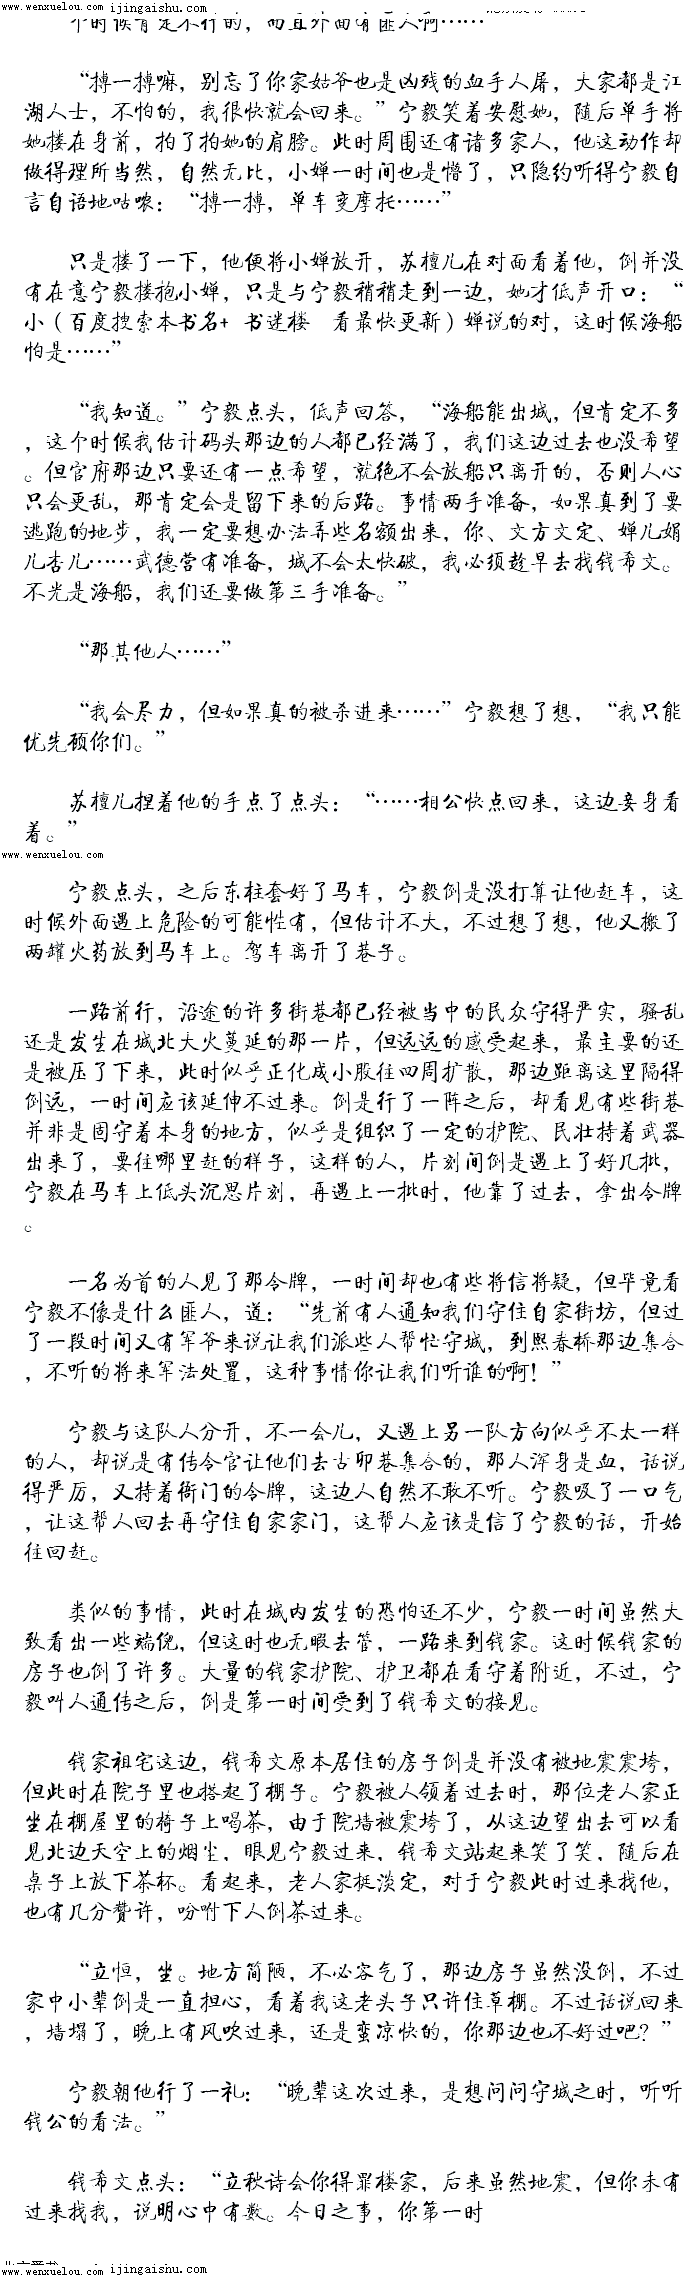 www.wenxuelou.com ijingaishu.com
个时候肯定不行的，而且外面有匪人啊……
“搏一搏嘛，别忘了你家姑爷也是凶残的血手人屠，大家都是江
湖人士，不怕的，我很快就会回来。”宁毅笑着安慰她，随后单手将
她搂在身前，拍了拍她的肩膀。此时周围还有诸多家人，他这动作却
做得理所当然，自然无比，小婵一时间也是懵了，只隐约听得宁毅自
言自语地咕哝：“搏一搏，单车变摩托……”
只是搂了一下，他便将小婵放开，苏檀儿在对面看着他，倒并没
有在意宁毅搂抱小婵，只是与宁毅稍稍走到一边，她才低声开口：“
小（百度搜索本书名+ 书迷楼 看最快更新）婵说的对，这时候海船
怕是……”
“我知道。”宁毅点头，低声回答，“海船能出城，但肯定不多
，这个时候我估计码头那边的人都已经满了，我们这边过去也没希望
。但官府那边只要还有一点希望，就绝不会放船只离开的，否则人心
只会更乱，那肯定会是留下来的后路。事情两手准备，如果真到了要
逃跑的地步，我一定要想办法弄些名额出来，你、文方文定、婵儿娟
儿杏儿……武德营有准备，城不会太快破，我必须趁早去找钱希文。
不光是海船，我们还要做第三手准备。”
“那其他人……”
“我会尽力，但如果真的被杀进来……”宁毅想了想，“我只能
优先顾你们。”
苏檀儿捏着他的手点了点头：“……相公快点回来，这边妾身看
着。”
www.wenxuelou.com
宁毅点头，之后东柱套好了马车，宁毅倒是没打算让他赶车，这
时候外面遇上危险的可能性有，但估计不大，不过想了想，他又搬了
两罐火药放到马车上。驾车离开了巷子。
一路前行，沿途的许多街巷都已经被当中的民众守得严实，骚乱
还是发生在城北大火蔓延的那一片，但远远的感受起来，最主要的还
是被压了下来，此时似乎正化成小股往四周扩散，那边距离这里隔得
倒远，一时间应该延伸不过来。倒是行了一阵之后，却看见有些街巷
并非是固守着本身的地方，似乎是组织了一定的护院、民壮持着武器
出来了，要往哪里赶的样子，这样的人，片刻间倒是遇上了好几批，
宁毅在马车上低头沉思片刻，再遇上一批时，他靠了过去，拿出令牌
。
一名为首的人见了那令牌，一时间却也有些将信将疑，但毕竟看
宁毅不像是什么匪人，道：“先前有人通知我们守住自家街坊，但过
了一段时间又有军爷来说让我们派些人帮忙守城，到熙春桥那边集合
，不听的将来军法处置，这种事情你让我们听谁的啊！”
宁毅与这队人分开，不一会儿，又遇上另一队方向似乎不太一样
的人，却说是有传令官让他们去古卯巷集合的，那人浑身是血，话说
得严厉，又持着衙门的令牌，这边人自然不敢不听。宁毅吸了一口气
，让这帮人回去再守住自家家门，这帮人应该是信了宁毅的话，开始
往回赶。
类似的事情，此时在城内发生的恐怕还不少，宁毅一时间虽然大
致看出一些端倪，但这时也无暇去管，一路来到钱家。这时候钱家的
房子也倒了许多。大量的钱家护院、护卫都在看守着附近，不过，宁
毅叫人通传之后，倒是第一时间受到了钱希文的接见。
钱家祖宅这边，钱希文原本居住的房子倒是并没有被地震震垮，
但此时在院子里也搭起了棚子。宁毅被人领着过去时，那位老人家正
坐在棚屋里的椅子上喝茶，由于院墙被震垮了，从这边望出去可以看
见北边天空上的烟尘，眼见宁毅过来，钱希文站起来笑了笑，随后在
桌子上放下茶杯。看起来，老人家挺淡定，对于宁毅此时过来找他，
也有几分赞许，吩咐下人倒茶过来。
“立恒，坐。地方简陋，不必客气了，那边房子虽然没倒，不过
家中小辈倒是一直担心，看着我这老头子只许住草棚。不过话说回来
，墙塌了，晚上有风吹过来，还是蛮凉快的，你那边也不好过吧？”
宁毅朝他行了一礼：“晚辈这次过来，是想问问守城之时，听听
钱公的看法。”
钱希文点头：“立秋诗会你得罪楼家，后来虽然地震，但你未有
过来找我，说明心中有数。今日之事，你第一时
www.wenxuelou.com ijingaishu.com